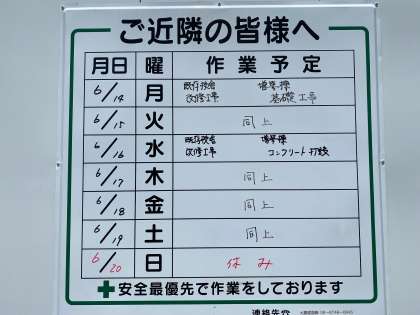 ご近隣の皆様へ
月日 曜 作業予定
6/14 月 既存校舎 増築棟
改修工事 基礎工事
6/15 火 同上
6/16 水 既存校舎 増築棟
改修工事 コンクリート打設
6/17 木 同上
6/18 金 同上
6/19 土 同上
6/20 日 休み
安全最優先で作業をしております
連絡先